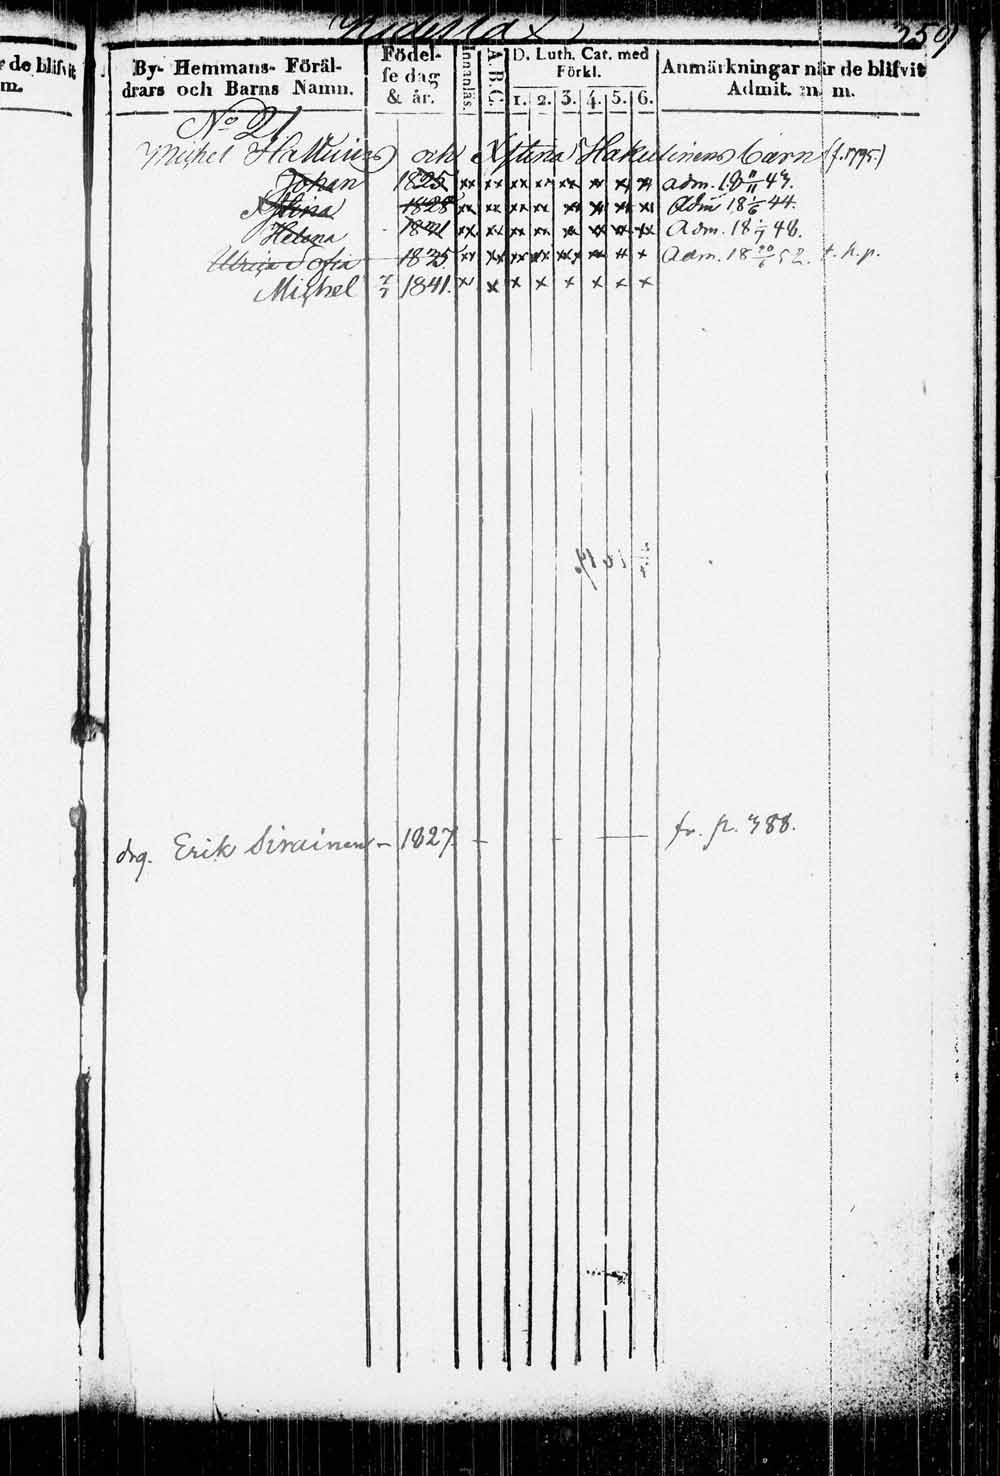 359
de blifvit
m.
By- Hemmans- Föräl-
drars och Barns Namn.
Födel-
se dag
& år.
Innanläs.
A B C
D. Luth. Cat. med
Förkl.
1. 2. 3. 4. 5. 6.
Anmärkningar när de blifvit
Admit. m. m.
No 21
Michel och Xstina Hakulinens barn (f. 1795.)
Johan 1825 xx xx xx xx xx xx xx xx adm. 18 11/11 43.
Xstina 1828 xx xx xx xx xx xx xx xx Adm 18 1/6 44.
Helena xx xx xx xx xx xx xx xx Adm. 18 1/7 48.
Ulrica Sofia 1835 xx xx xx xx xx xx xx x Adm. 18 20/6 52. t. h. p.
Michel 7/7 1841. x x x x x x x x
drg. Erik Sirainen – 1827. – – — fr. p. 388.